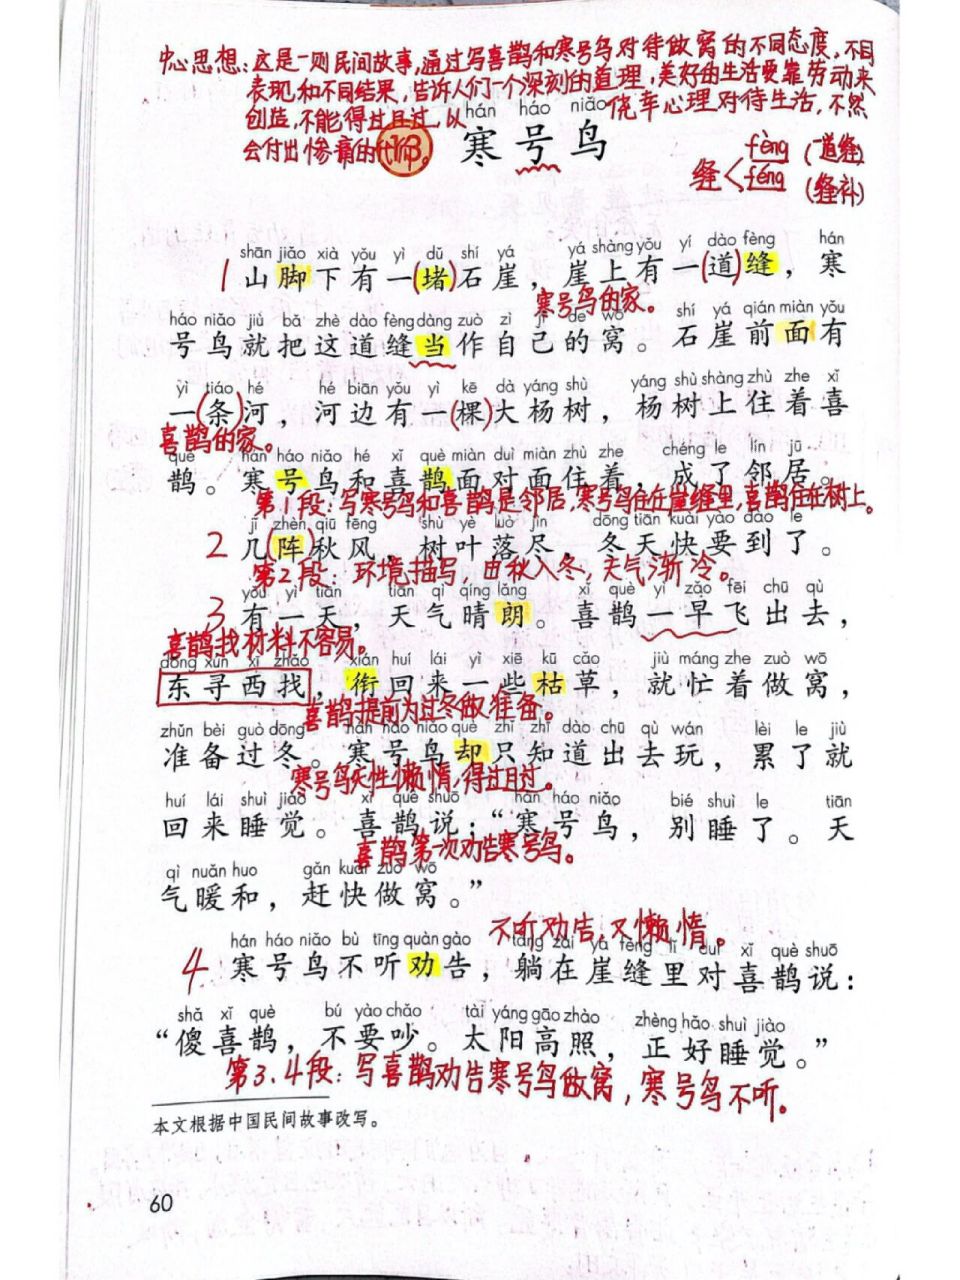 中心思想:这是一则民间故事,通过写喜鹊和寒号鸟对待做窝的不同态度,不同
表现和不同结果,告诉人们一个深刻的道理,美好的生活要靠劳动来
创造,不能得过且过,以侥幸心理对待生活,不然
会付出惨痛的代价。
13
hán háo niǎo
寒号鸟
缝 fèng (道缝)
féng (缝补)
shān jiǎo xià yǒu yì dǔ shí yá yá shàng yǒu yí dào fèng hán
1 山脚下有一(堵)石崖,崖上有一(道)缝,寒
寒号鸟的家。
háo niǎo jiù bǎ zhè dào fèng dàng zuò zì jǐ de wō shí yá qián miàn yǒu
号鸟就把这道缝当作自己的窝。石崖前面有
yì tiáo hé hé biān yǒu yì kē dà yáng shù yáng shù shàng zhù zhe xǐ
一(条)河,河边有一(棵)大杨树,杨树上住着喜
喜鹊的家。
què hán háo niǎo hé xǐ què miàn duì miàn zhù zhe chéng le lín jū
鹊。寒号鸟和喜鹊面对面住着,成了邻居。
第1段:写寒号鸟和喜鹊是邻居,寒号鸟住在崖缝里,喜鹊住在树上。
jǐ zhèn qiū fēng shù yè luò jìn dōng tiān kuài yào dào le
2 几(阵)秋风,树叶落尽,冬天快要到了。
第2段:环境描写,由秋入冬,天气渐冷。
yǒu yì tiān tiān qì qíng lǎng xǐ què yì zǎo fēi chū qù
3 有一天,天气晴朗。喜鹊一早飞出去,
喜鹊找材料不容易。
dōng xún xī zhǎo xián huí lái yì xiē kū cǎo jiù máng zhe zuò wō
东寻西找,衔回来一些枯草,就忙着做窝,
喜鹊提前为过冬做准备。
zhǔn bèi guò dōng hán háo niǎo què zhǐ zhī dào chū qù wán lèi le jiù
准备过冬。寒号鸟却只知道出去玩,累了就
寒号鸟天性懒惰,得过且过。
huí lái shuì jiào xǐ què shuō hán háo niǎo bié shuì le tiān
回来睡觉。喜鹊说:“寒号鸟,别睡了。天
喜鹊第一次劝告寒号鸟。
qì nuǎn huo gǎn kuài zuò wō
气暖和,赶快做窝。”
不听劝告,又懒惰。
hán háo niǎo bù tīng quàn gào tǎng zài yá fèng lǐ duì xǐ què shuō
4 寒号鸟不听劝告,躺在崖缝里对喜鹊说:
shǎ xǐ què bú yào chǎo tài yáng gāo zhào zhèng hǎo shuì jiào
“傻喜鹊,不要吵。太阳高照,正好睡觉。”
第3.4段:写喜鹊劝告寒号鸟做窝,寒号鸟不听。
本文根据中国民间故事改写。
60